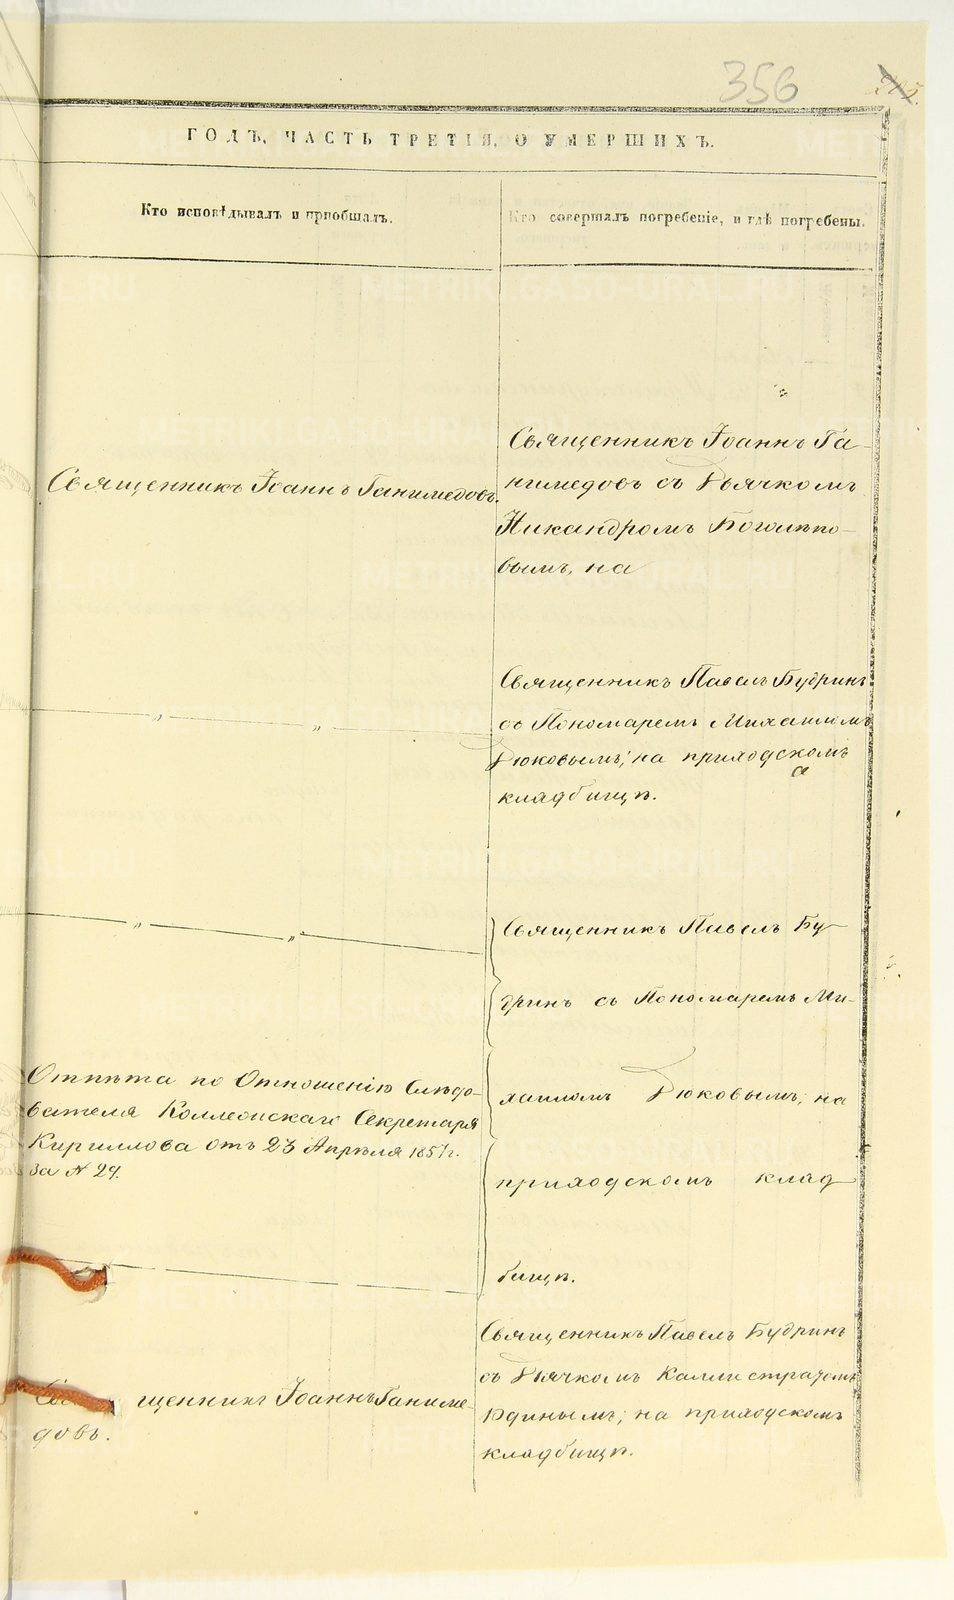 356
ГОДЪ, ЧАСТЬ ТРЕТІЯ, О УМЕРШИХЪ.
Кто исповѣдывалъ и пріобщалъ.
Кто совершалъ погребеніе, и гдѣ погребены.
Священникъ Іоаннъ Ганимедовъ.
Священникъ Іоаннъ Га-
нимедовъ съ Дьячкомъ
Никандромъ Боголѣпо-
вымъ, на
— „ — „ —
Священникъ Павелъ Будринъ
съ Пономаремъ Михаиломъ
Дюковымъ; на приходскомъ
кладбищѣ.
— „ — „ —
Священникъ Павелъ Бу-
дринъ съ Пономаремъ Ми-
хаиломъ Дюковымъ; на
приходскомъ клад-
бищѣ.
Отпѣта по Отношенію Слѣдо-
вателя Коллежскаго Секретаря
Кириллова отъ 23 Апрѣля 1857 г.
за № 24.
щенникъ Іоаннъ Ганиме-
довъ.
Священникъ Павелъ Будринъ
съ Дьячкомъ Каллистратомъ
Юдинымъ; на приходскомъ
кладбищѣ.
METRIKI.GASO-URAL.RU